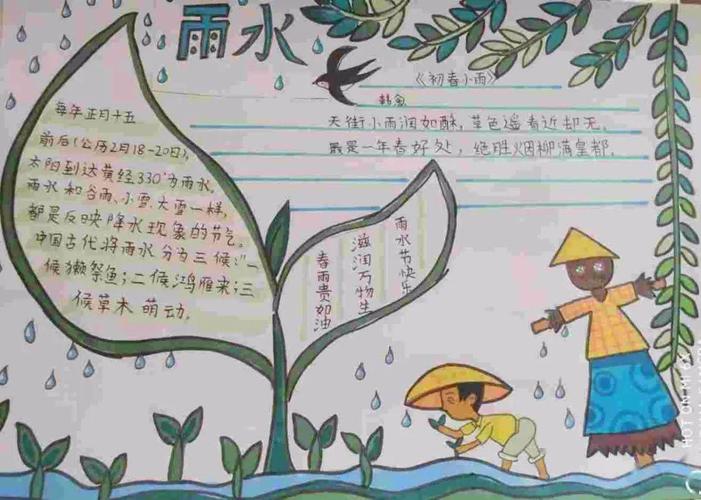 雨水
《初春小雨》
韩愈
天街小雨润如酥,草色遥看近却无。
最是一年春好处,绝胜烟柳满皇都。
每年正月十五
前后(公历2月18-20日),
太阳到达黄经330°为雨水。
雨水和谷雨、小雪、大雪一样,
都是反映降水现象的节气。
中国古代将雨水分为三候:“一
候獭祭鱼;二候鸿雁来;三
候草木萌动。
雨水节快乐
滋润万物生
春雨贵如油
HOT ON MI 6X